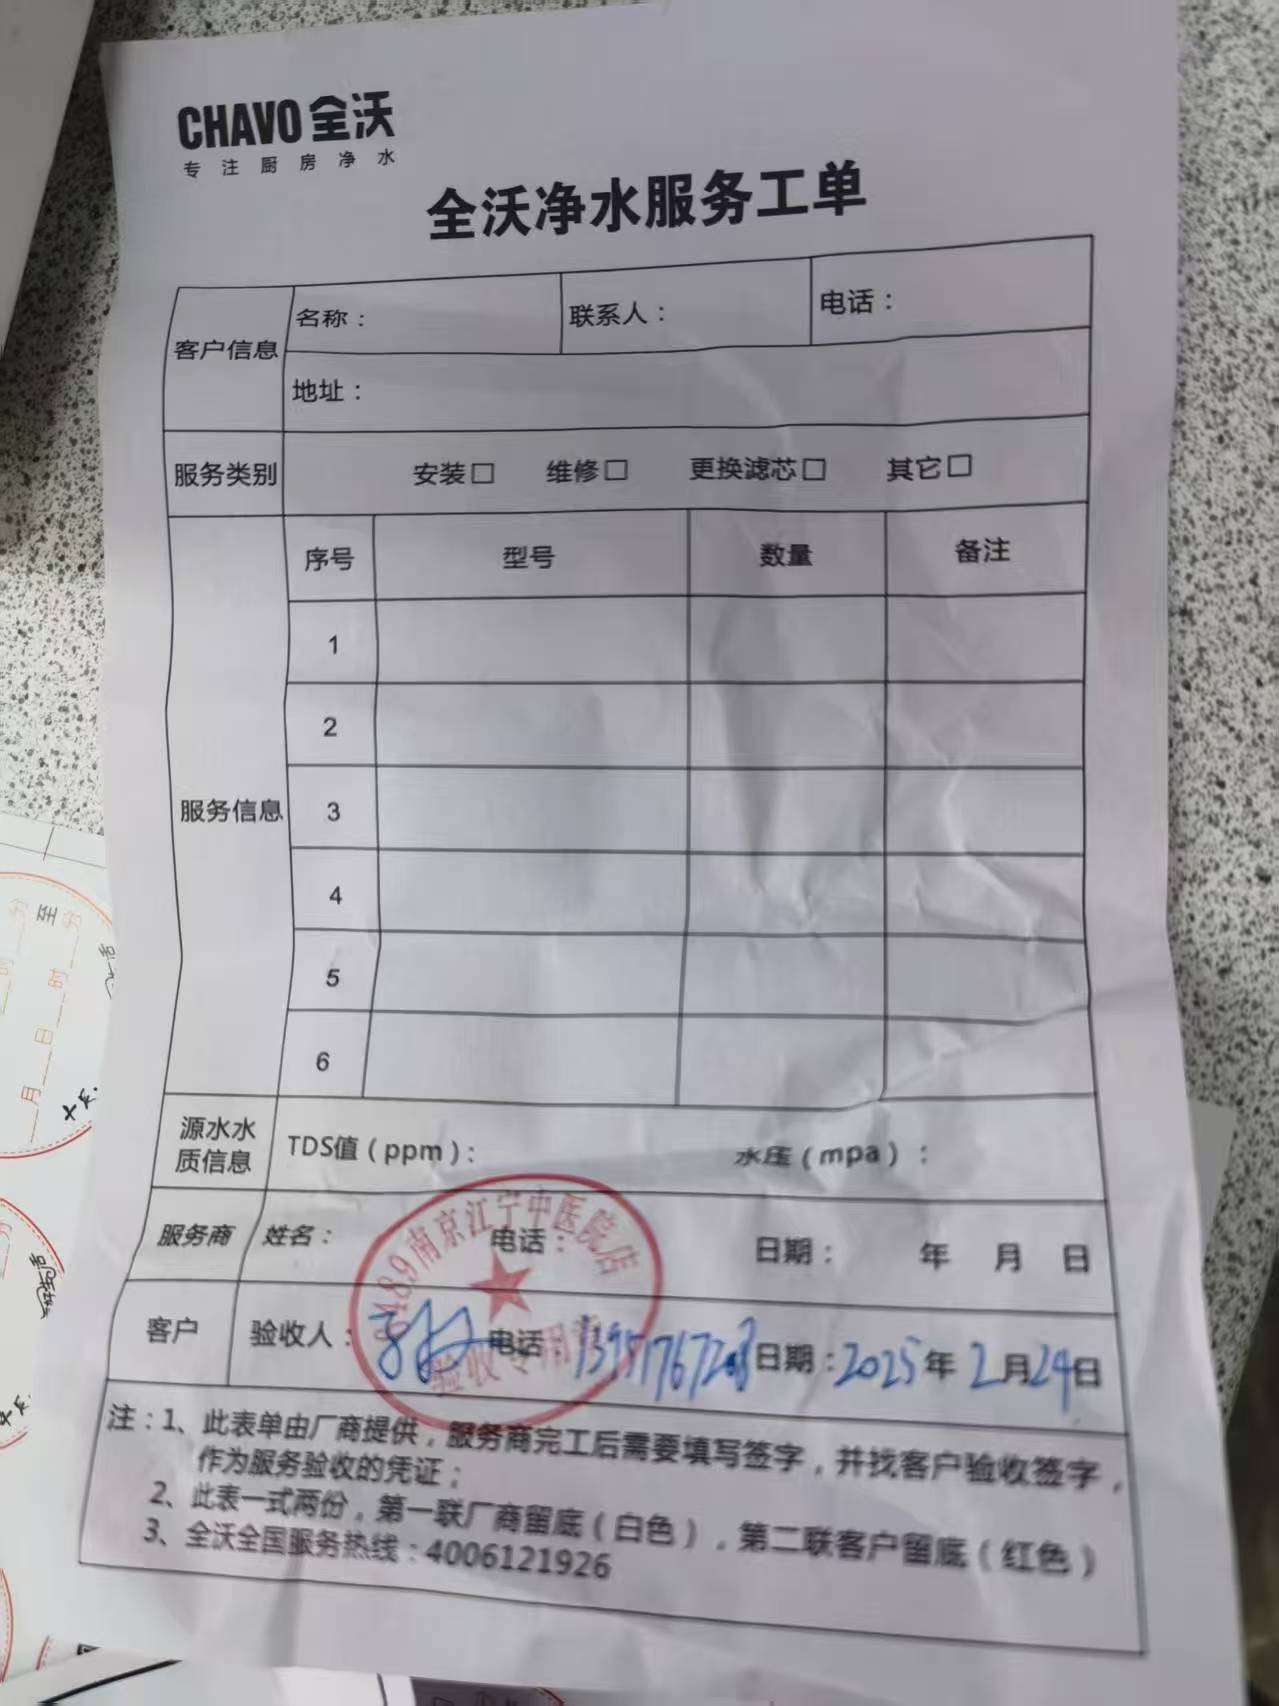 CHAVO 全沃
专注厨房净水
全沃净水服务工单
客户信息 名称： 联系人： 电话：
地址：
服务类别 安装□ 维修□ 更换滤芯□ 其它□
服务信息 序号 型号 数量 备注
1
2
3
4
5
6
源水水质信息 TDS值（ppm）： 水压（mpa）：
服务商 姓名： 电话： 日期： 年 月 日
南京江宁中医院店
验收专用
客户 验收人： 电话： 日期：2025年2月24日
注：1、此表单由厂商提供，服务商完工后需要填写签字，并找客户验收签字，
作为服务验收的凭证；
2、此表一式两份，第一联厂商留底（白色），第二联客户留底（红色）
3、全沃全国服务热线：4006121926
分 至 分
时 时
日
月